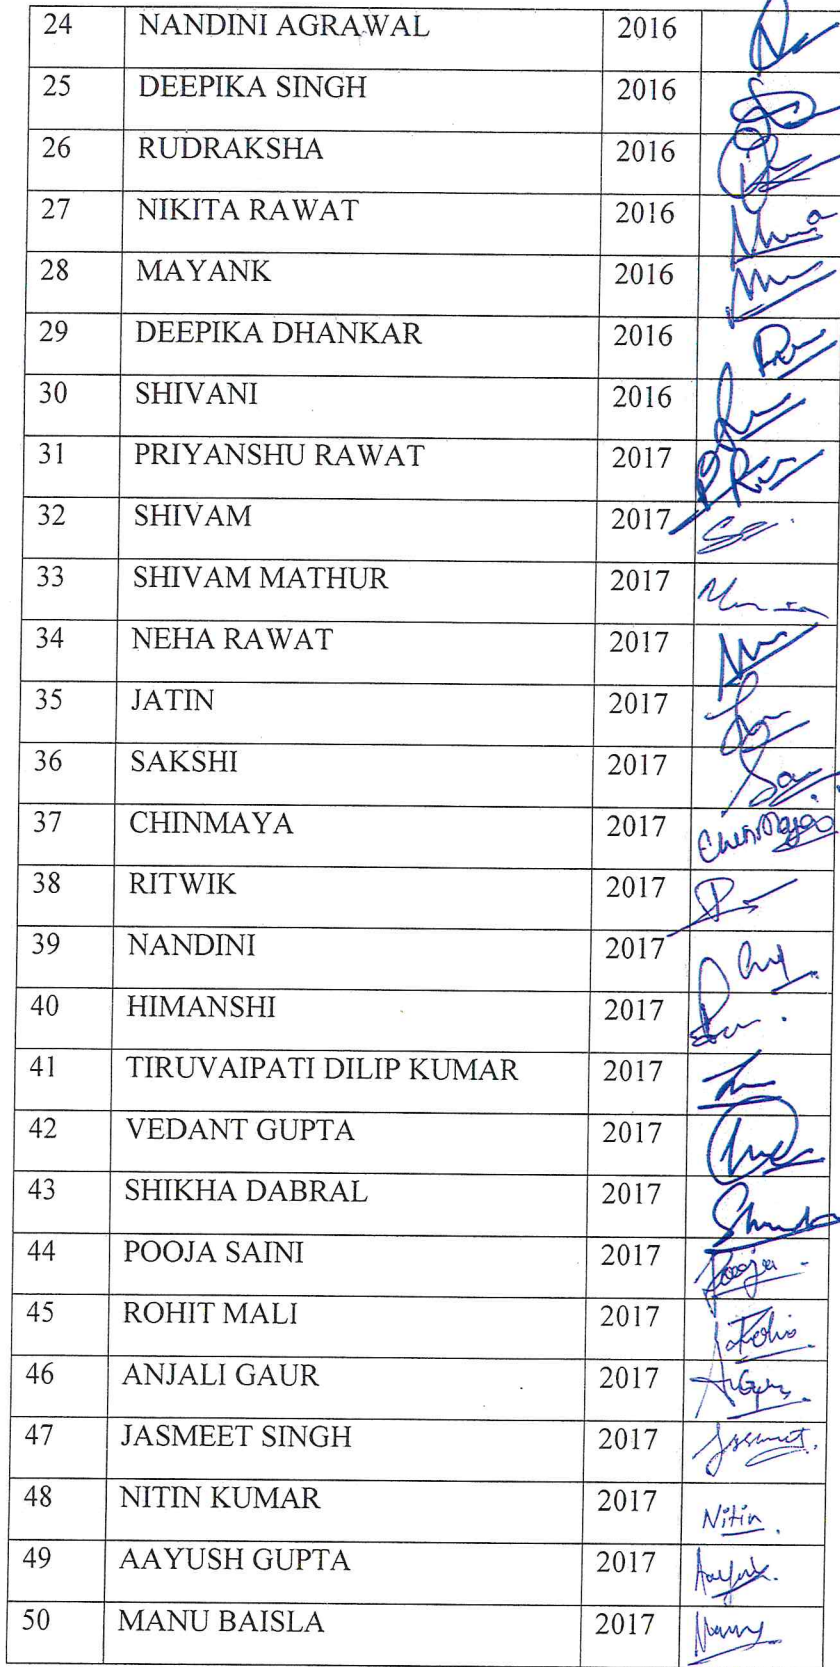 24 NANDINI AGRAWAL 2016
25 DEEPIKA SINGH 2016
26 RUDRAKSHA 2016
27 NIKITA RAWAT 2016
28 MAYANK 2016
29 DEEPIKA DHANKAR 2016
30 SHIVANI 2016
31 PRIYANSHU RAWAT 2017
32 SHIVAM 2017
33 SHIVAM MATHUR 2017
34 NEHA RAWAT 2017
35 JATIN 2017
36 SAKSHI 2017
37 CHINMAYA 2017
38 RITWIK 2017
39 NANDINI 2017
40 HIMANSHI 2017
41 TIRUVAIPATI DILIP KUMAR 2017
42 VEDANT GUPTA 2017
43 SHIKHA DABRAL 2017
44 POOJA SAINI 2017 Pooja
45 ROHIT MALI 2017
46 ANJALI GAUR 2017
47 JASMEET SINGH 2017 Jasmeet.
48 NITIN KUMAR 2017 Nitin.
49 AAYUSH GUPTA 2017
50 MANU BAISLA 2017